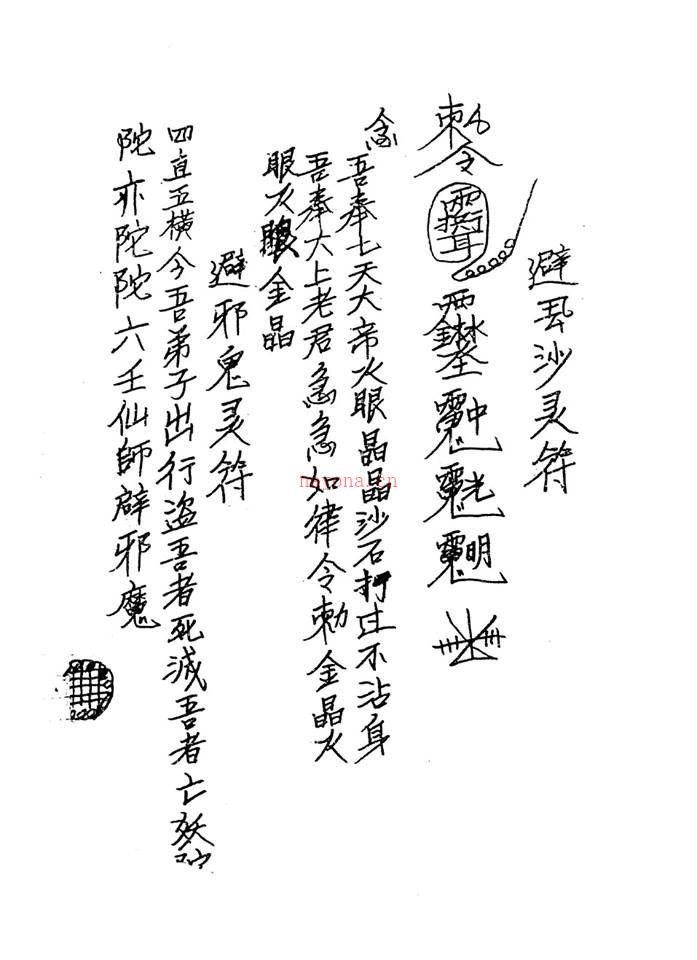 避风沙灵符
敕令
念
吾奉七天大帝火眼晶晶沙石打过不沾身
吾奉太上老君急急如律令勅金晶火
眼火眼金晶
避邪鬼灵符
四直五横今吾弟子出行盗吾者死滅吾者亡妖
陀亦陀陀六壬仙師辟邪魔
nayona.cn